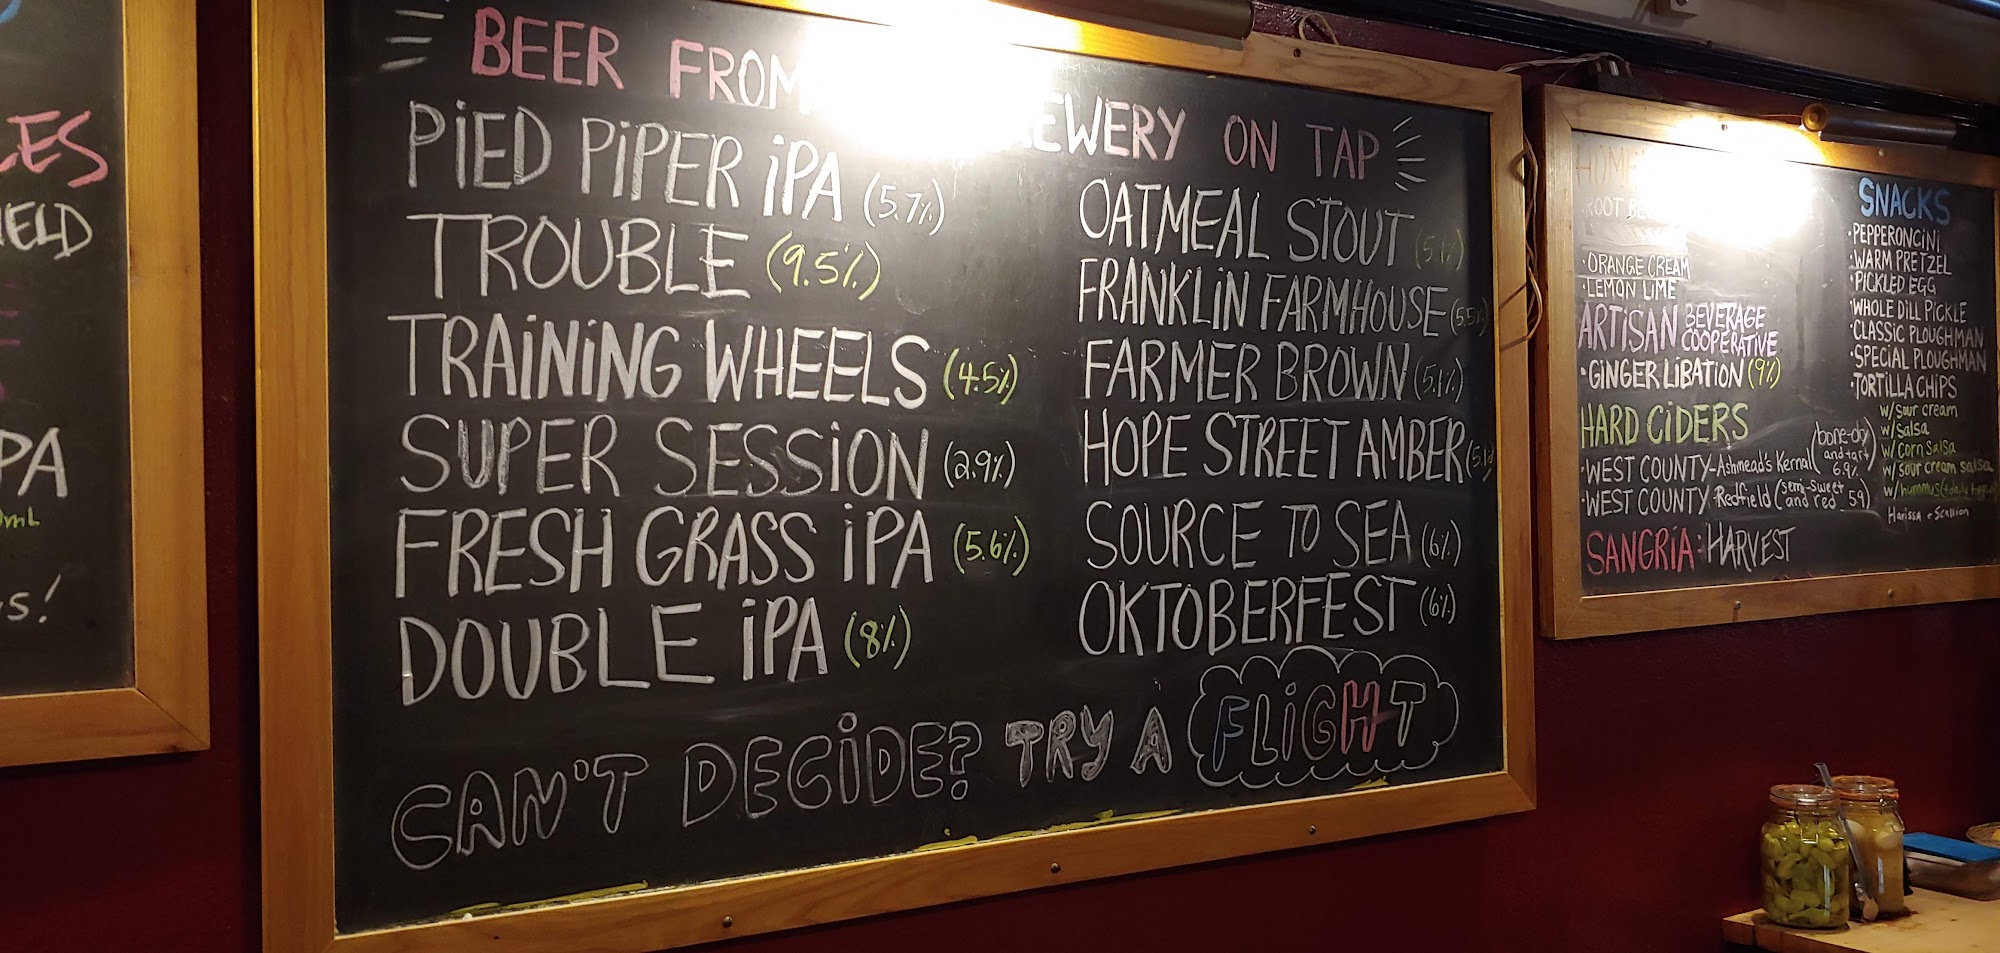 LES
IELD
PA
mL
s!
BEER FROM EWERY ON TAP
PiED PiPER iPA (5.7%)
TROUBLE (9.5%)
TRAiNiNG WHEELS (4.5%)
SUPER SESSiON (2.9%)
FRESH GRASS iPA (5.6%)
DOUBLE iPA (8%)
OATMEAL STOUT (5.1%)
FRANKLiN FARMHOUSE (5.5%)
FARMER BROWN (5.1%)
HOPE STREET AMBER (5.1%)
SOURCE TO SEA (6%)
OKTOBERFEST (6%)
CAN'T DECiDE? TRY A FLiGHT
HOME
ROOT BE
·ORANGE CREAM
·LEMON LIME
ARTiSAN BEVERAGE COOPERATIVE
·GiNGER LIBATION (9%)
HARD CiDERS
·WEST COUNTY-Ashmead's Kernal (bone-dry and tart 6.9%)
·WEST COUNTY-Redfield (semi-sweet and red 5.9)
SANGRiA: HARVEST
SNACKS
·PEPPERONCiNi
·WARM PRETZEL
·PiCKLED EGG
·WHOLE DiLL PiCKLE
·CLASSIC PLOUGHMAN
·SPECIAL PLOUGHMAN
·TORTiLLA CHiPS
w/sour cream
w/salsa
w/corn salsa
w/sour cream salsa
w/hummus
Harissa + Scallion